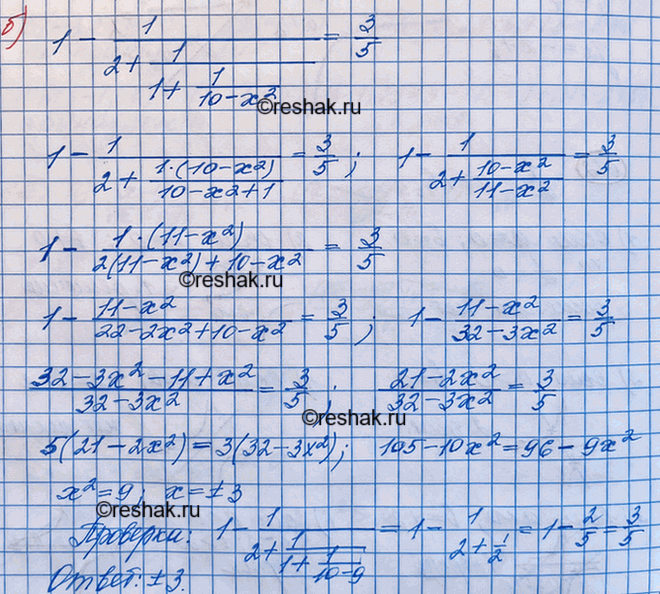 б)
1 - 1/(2 + 1/(1 + 1/(10 - x²))) = 3/5
©reshak.ru
1 - 1/(2 + (1·(10 - x²))/(10 - x² + 1)) = 3/5 ; 1 - 1/(2 + (10 - x²)/(11 - x²)) = 3/5
1 - (1·(11 - x²))/(2(11 - x²) + 10 - x²) = 3/5
©reshak.ru
1 - (11 - x²)/(22 - 2x² + 10 - x²) = 3/5 ; 1 - (11 - x²)/(32 - 3x²) = 3/5
(32 - 3x² - 11 + x²)/(32 - 3x²) = 3/5 ; (21 - 2x²)/(32 - 3x²) = 3/5
©reshak.ru
5(21 - 2x²) = 3(32 - 3x²); 105 - 10x² = 96 - 9x²
x² = 9; x = ±3
©reshak.ru
Проверка: 1 - 1/(2 + 1/(1 + 1/(10 - 9))) = 1 - 1/(2 + 1/2) = 1 - 2/5 = 3/5
Ответ: ±3.